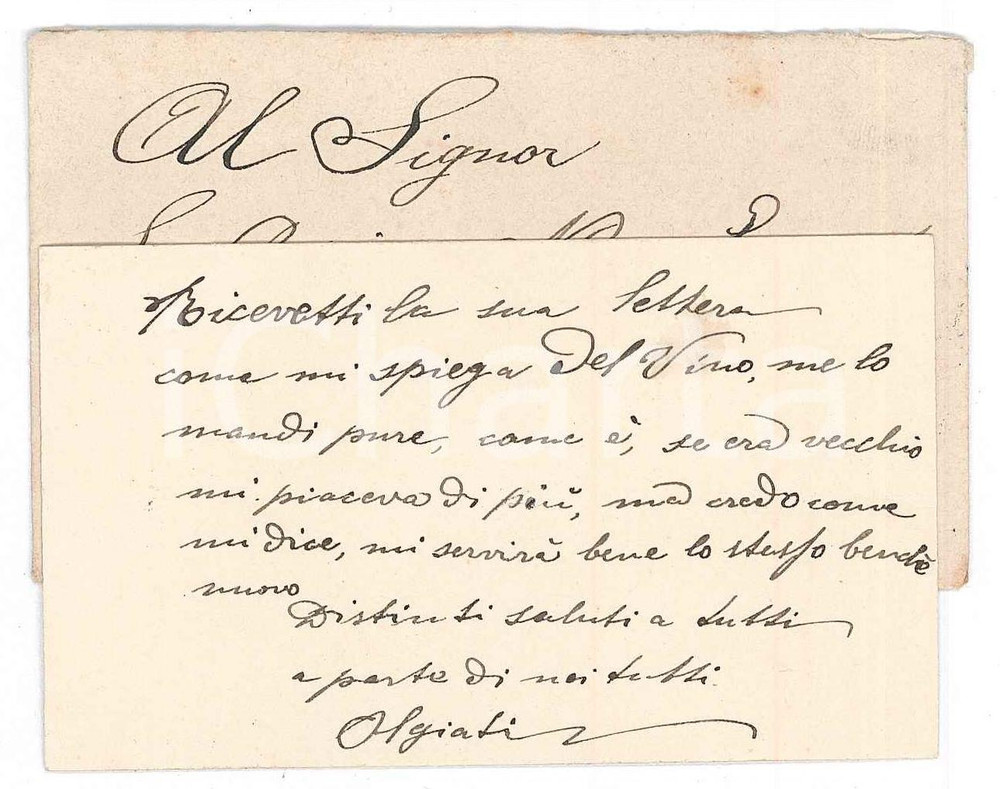 Al Signor
Ricevetti la sua lettera
come mi spiega Del Vino, me lo
mandi pure, come è, se era vecchio
mi piaceva di più, ma credo come
mi dice, mi servirà bene lo stesso benchè
nuovo
Distinti saluti a tutti
a parte di noi tutti.
Olgiati
iCharta